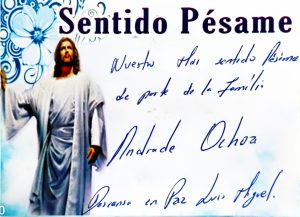 Sentido Pésame
Nuestro Mas sentido Pésame
de parte de la Famili
Andrade Ochoa
Descanse en Paz Luis Miguel.